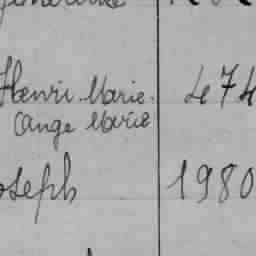 Henri Marie. 474
Ange Marie
oseph 1980